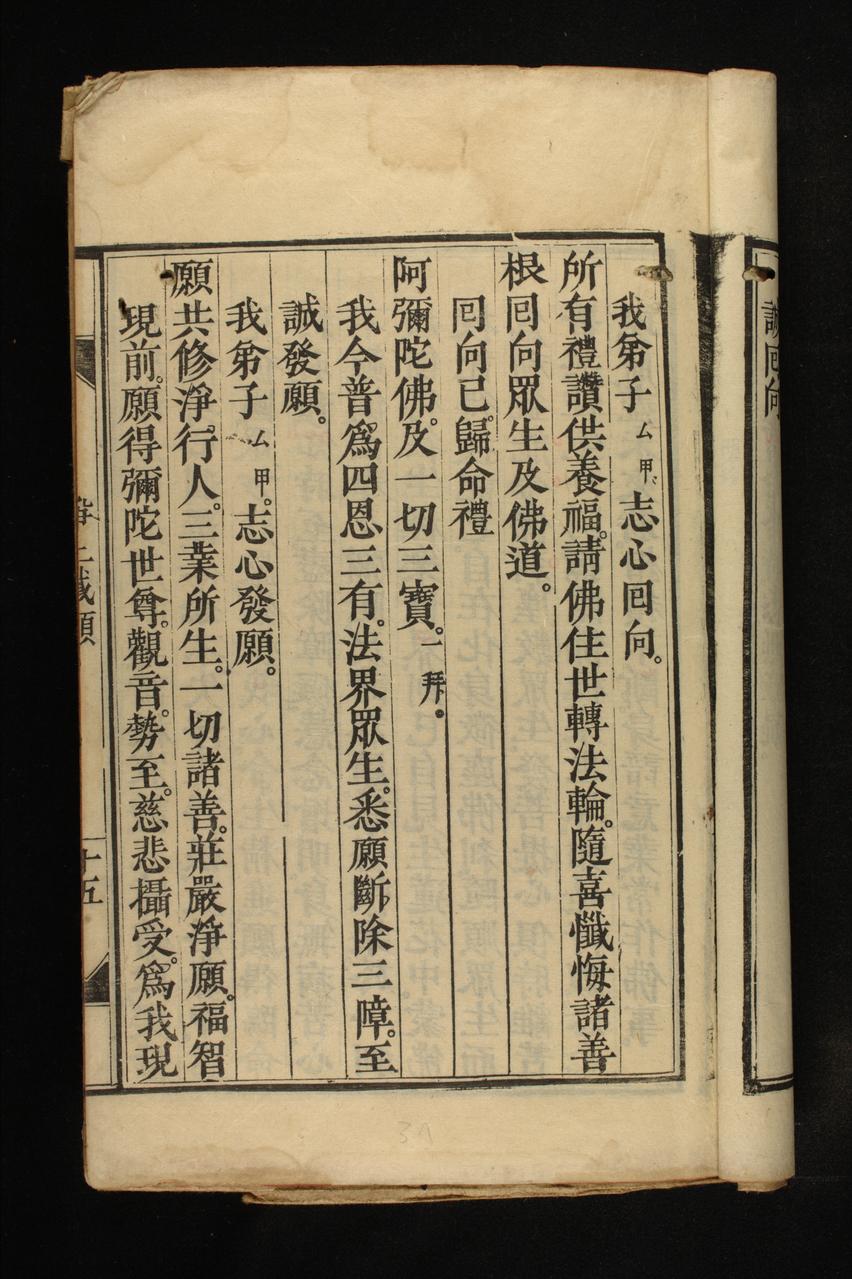 誠回向
我弟子 厶甲、志心回向。
所有禮讚供養福。請佛住世轉法輪。隨喜懺悔諸善
根回向眾生及佛道。
回向已。歸命禮
阿彌陀佛。及一切三寶。一拜。
我今普為四恩三有。法界眾生。悉願斷除三障。至
誠發願。
我弟子 厶甲。志心發願。
願共修淨。行人。三業所生。一切諸善。莊嚴淨願。福智
現前。願得彌陀世尊。觀音。勢至。慈悲攝受。為我現
懺願
十五
3A